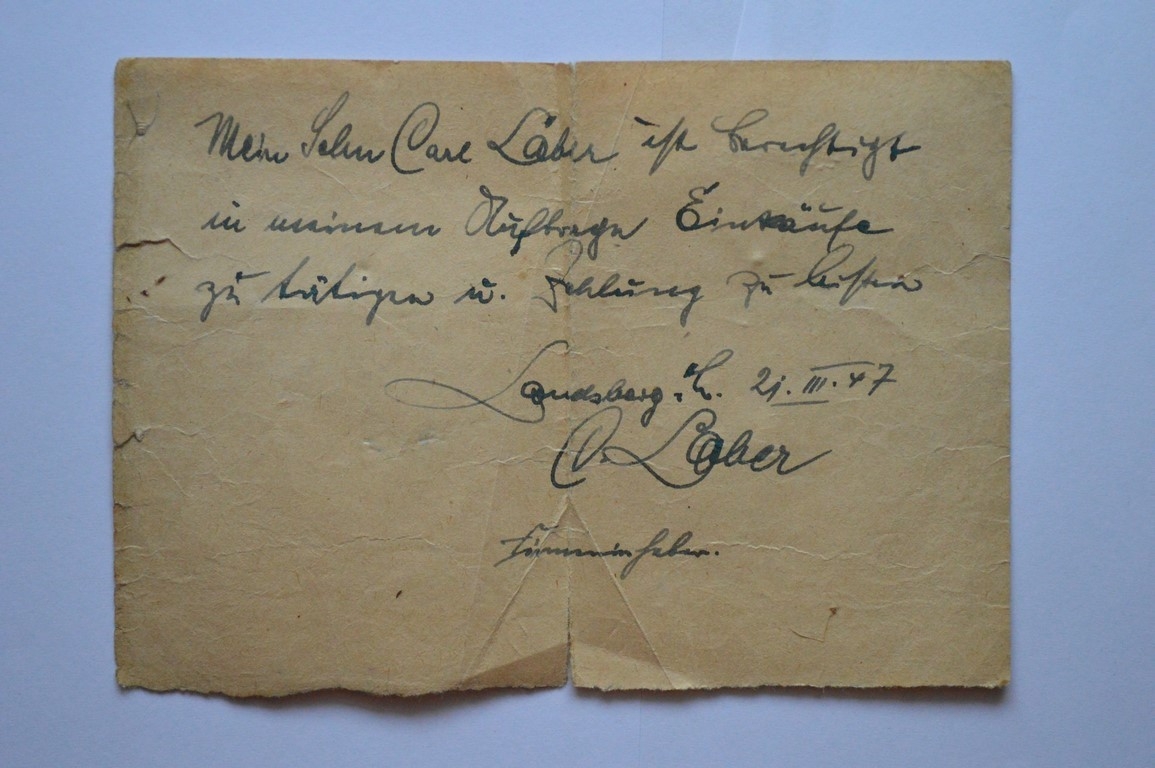 Mein Sohn Carl Läber ist berechtigt
in meinem Auftrage Einkäufe
zu tätigen u. Zahlung zu leisten
Landsberg a. L. 21. III. 47
C. Läber
Firmeninhaber.